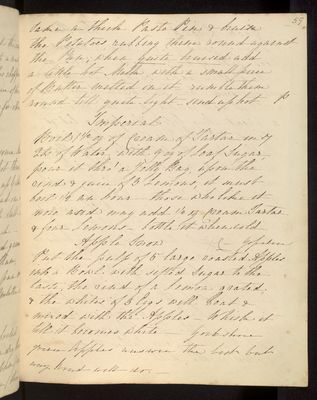 59
take a thick Paste Pin, & bruise
the Potatoes rubbing them round against
the Pan, when quite bruised add
a little hot Milk with a small piece
of Butter melted in it rumble them
round till quite light. send up hot
Imperial
Boil 1½ oz of Cream of Tartar in
of Water, with of Loaf Sugar
pour it thro' a Jelly Bag, upon the
rind & juice of 3 Lemons, it must
boil ½ an hour - those who like it
more acid may add cream Tartar
& four Lemons - bottle it when cold
Apple Snow
Put the pulp of 5 large roasted Apples
into a Bowl with sifted Sugar to the
taste, the rind of a Lemon grated,
& the whites of 3 Eggs well beat &
mixed with the Apples - Whisk it
till it becomes white
green Apples answer the best but
any kind will do -